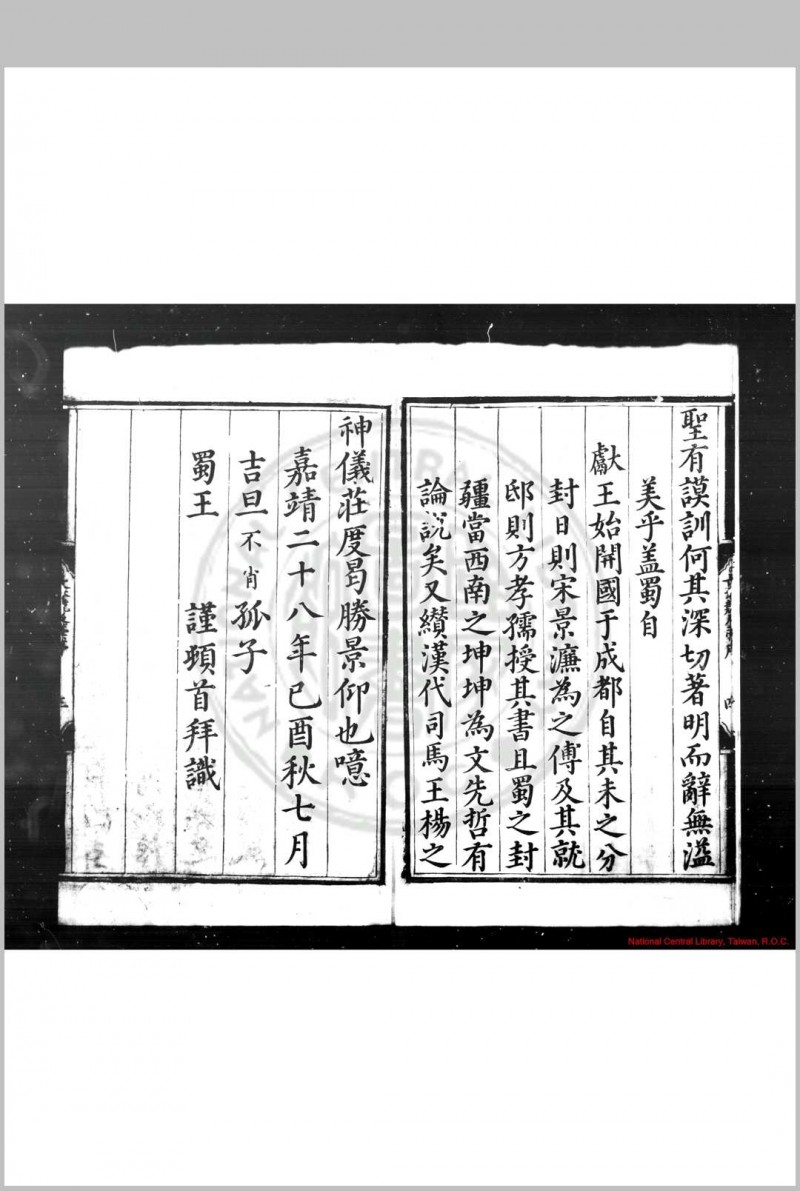 聖有謨訓何其深切著明而辭無溢
美乎盖蜀自
獻王始開國于成都自其未之分
封日則宋景濂為之傅及其就
邸則方孝孺授其書且蜀之封
疆當西南之坤坤為文先哲有
論說矣又纘漢代司馬王楊之
神儀莊度曷勝景仰也噫
嘉靖二十八年己酉秋七月
吉旦不肖孤子
蜀王 謹頓首拜識
National Central Library, Taiwan, R.O.C.